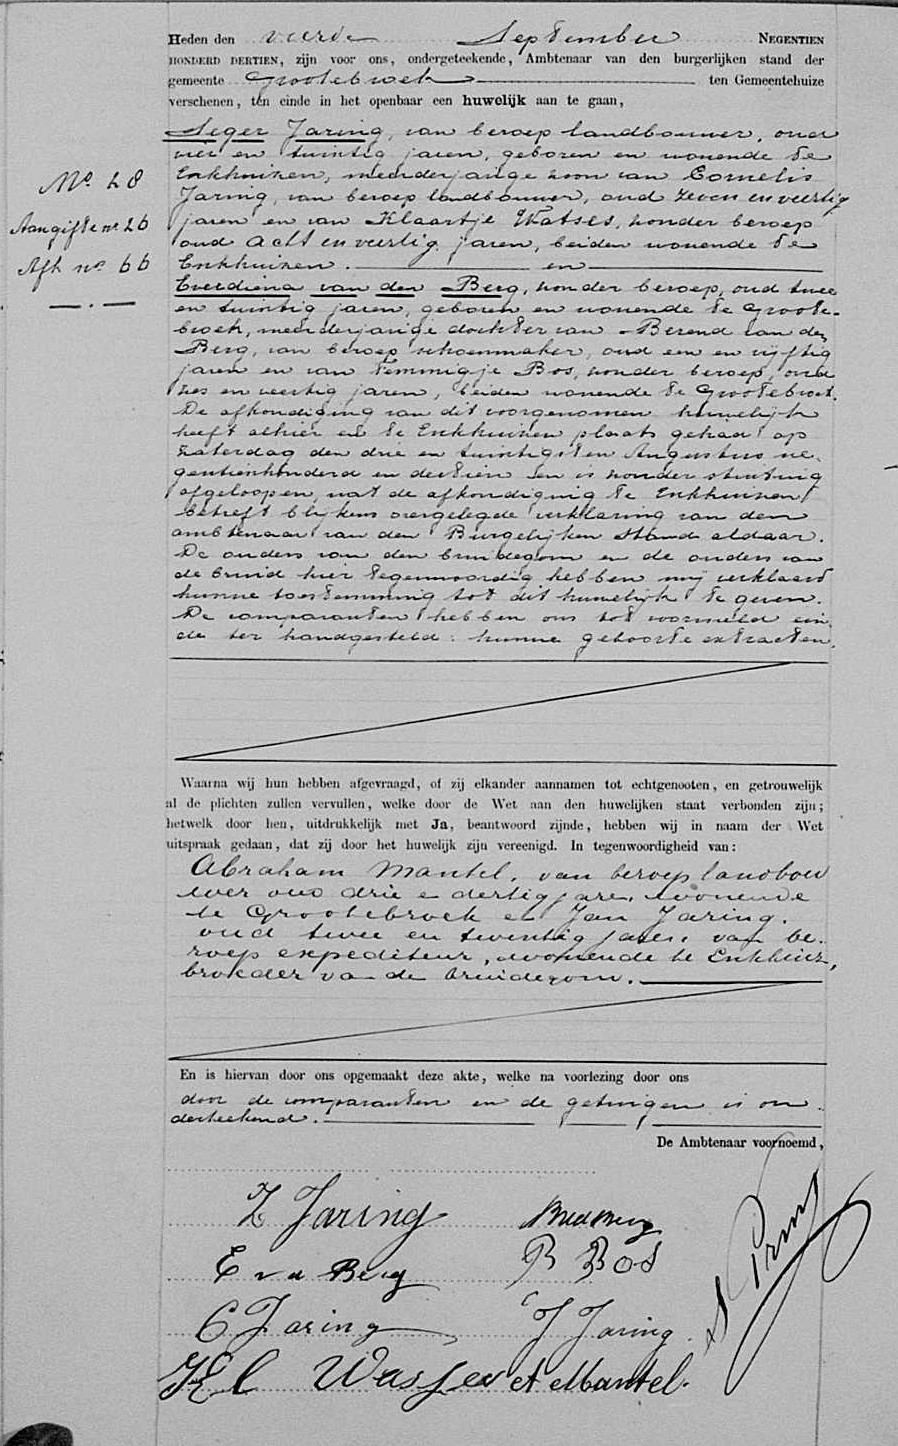 Heden den vierde September NEGENTIEN
HONDERD DERTIEN, zijn voor ons, ondergeteekende, Ambtenaar van den burgerlijken stand der
gemeente Grootebroek ten Gemeentehuize
verschenen, ten einde in het openbaar een huwelijk aan te gaan,
Seger Jaring, van beroep landbouwer, oud
vier en twintig jaren, geboren en wonende te
Enkhuizen, meerderjarige zoon van Cornelis
Jaring, van beroep landbouwer, oud zeven en veertig
jaren en van Klaartje Watses, zonder beroep
oud acht en veertig jaren, beiden wonende te
Enkhuizen. en
No. 28
Aangifte no 26
Afk no. 66
Everdiena van den Berg, zonder beroep, oud twee
en twintig jaren, geboren en wonende te Groote-
broek, meerderjarige dochter van Berend van den
Berg, van beroep schoenmaker, oud een en vijftig
jaren en van Femmigje Bos, zonder beroep, oud
zes en veertig jaren, beiden wonende te Grootebroek.
De afkondiging van dit voorgenomen huwelijk
heeft alhier en te Enkhuizen plaats gehad op
Zaterdag den drie en twintigsten Augustus ne-
gentienhonderd en dertien en is zonder stuiting
afgeloopen, wat de afkondiging te Enkhuizen
betreft blijkens overgelegde verklaring van den
ambtenaar van den Burgelijken Stand aldaar.
De ouders van den bruidegom en de ouders van
de bruid hier tegenwoordig hebben mij verklaard
hunne toestemming tot dit huwelijk te geven.
De comparanten hebben ons tot voormeld ein-
de ter handgesteld: hunne geboorte extracten.
Waarna wij hun hebben afgevraagd, of zij elkander aannamen tot echtgenooten, en getrouwelijk
al de plichten zullen vervullen, welke door de Wet aan den huwelijken staat verbonden zijn;
hetwelk door hen, uitdrukkelijk met Ja, beantwoord zijnde, hebben wij in naam der Wet
uitspraak gedaan, dat zij door het huwelijk zijn vereenigd. In tegenwoordigheid van:
Abraham Mantel, van beroep landbou
wer oud drie e dertig jare, wonende
te Grootebroek en Jan Jaring.
oud twee en twintig jaren van be-
roep expediteur, wonende te Enkhuiz,
broeder va de bruidegom.
En is hiervan door ons opgemaakt deze akte, welke na voorlezing door ons
door de comparanten en de getuigen is on-
derteekend.
De Ambtenaar voornoemd,
Z Jaring
E v d Berg B Bos
C Jaring J Jaring
A Mantel.